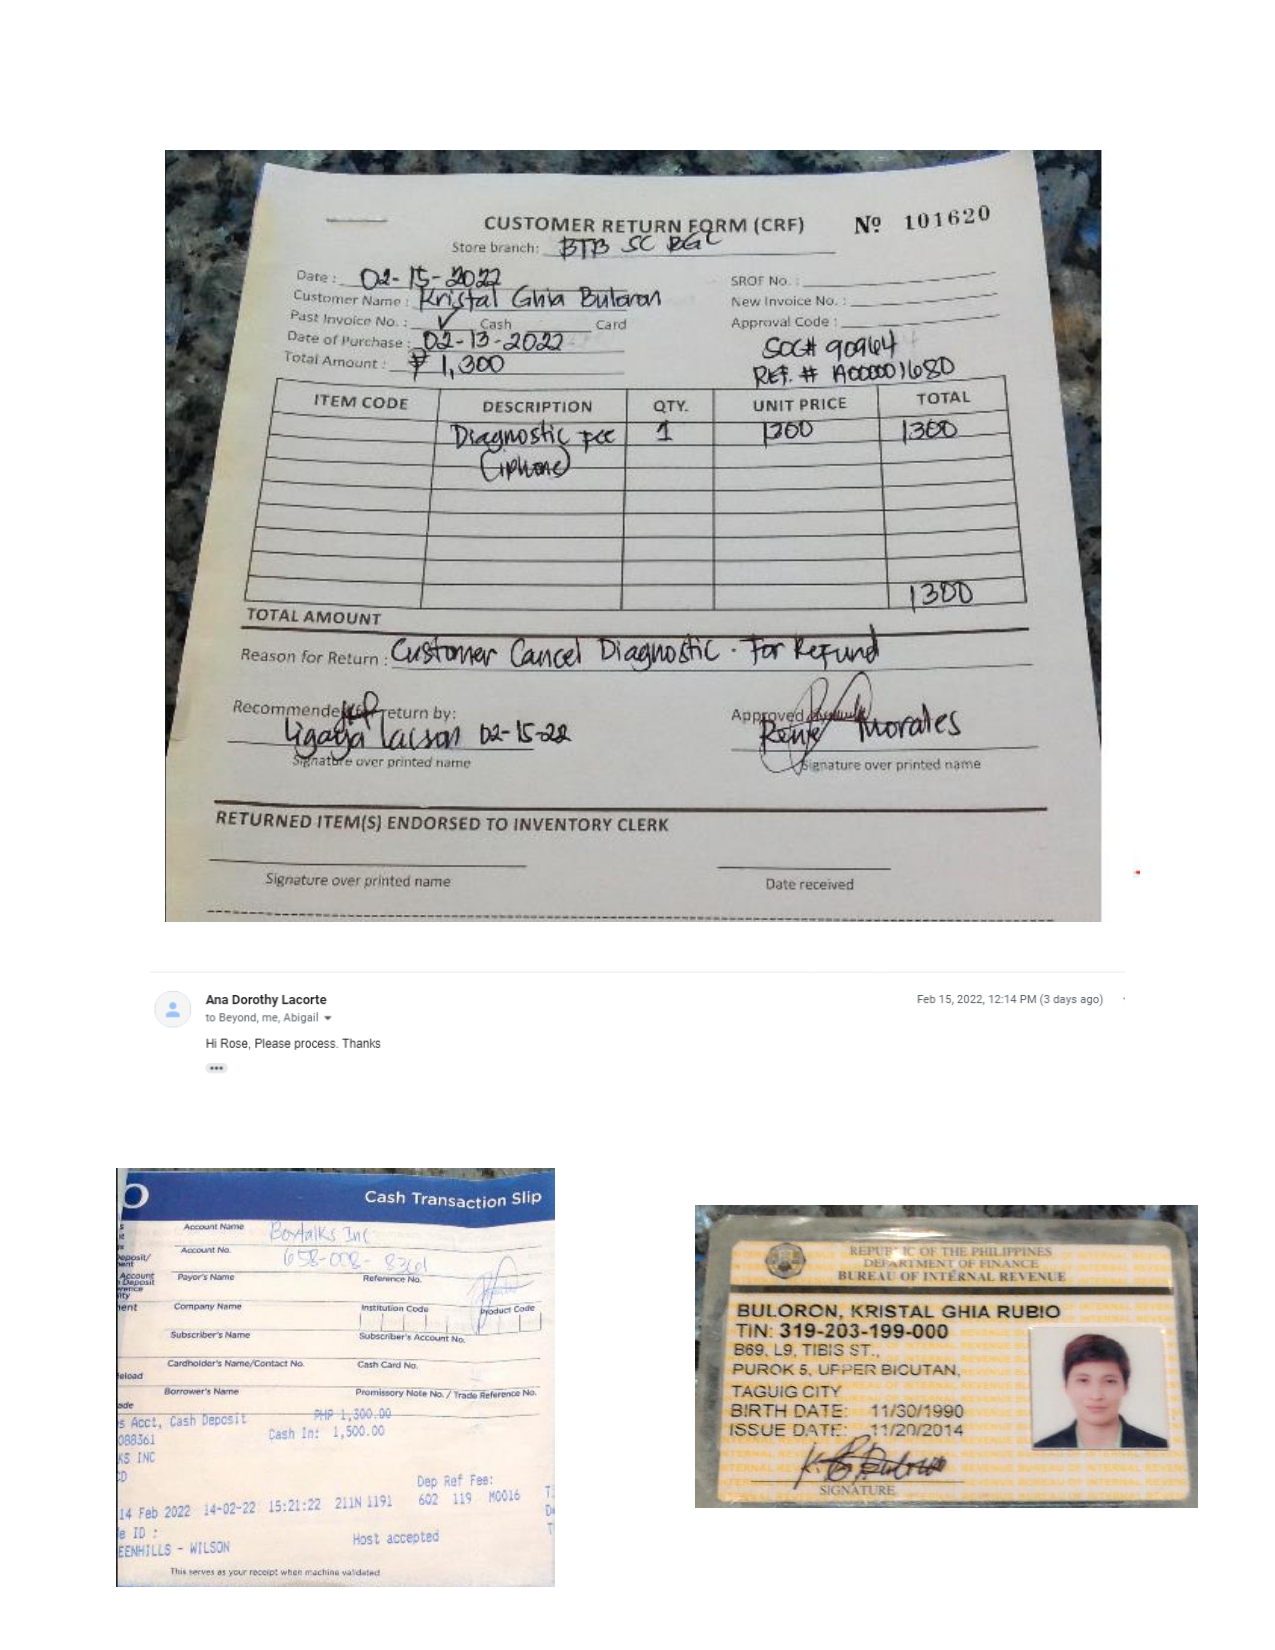 CUSTOMER RETURN FORM (CRF) Nº 101620
Store branch: BTB SC BGC
Date : 02-15-2022 SROF No. :
Customer Name : Kristal Ghia Buloron New Invoice No. :
Past Invoice No. : ✓ Cash Card Approval Code :
Date of Purchase : 02-13-2022 SOC# 90964
Total Amount : ₱ 1,300 REF. # A00001680
ITEM CODE DESCRIPTION QTY. UNIT PRICE TOTAL
Diagnostic fee 1 1300 1300
(iphone)
1300
TOTAL AMOUNT
Reason for Return : Customer Cancel Diagnostic . For Refund
Recommended for return by: Approved
Ligaya Lacson 02-15-22 Morales
Signature over printed name Signature over printed name
RETURNED ITEM(S) ENDORSED TO INVENTORY CLERK
Signature over printed name Date received
Ana Dorothy Lacorte Feb 15, 2022, 12:14 PM (3 days ago)
to Beyond, me, Abigail
Hi Rose, Please process. Thanks
Cash Transaction Slip
Account Name Boxtalks Inc
Account No. 658-008-8361
Payor's Name Reference No.
Company Name Institution Code Product Code
Subscriber's Name Subscriber's Account No.
Cardholder's Name/Contact No. Cash Card No.
Borrower's Name Promissory Note No. / Trade Reference No.
s Acct, Cash Deposit PHP 1,300.00
088361 Cash In: 1,500.00
KS INC
Dep Ref Fee:
14 Feb 2022 14-02-22 15:21:22 211N 1191 602 119 M0016
e ID : Host accepted
EENHILLS - WILSON
This serves as your receipt when machine validated
REPUBLIC OF THE PHILIPPINES
DEPARTMENT OF FINANCE
BUREAU OF INTERNAL REVENUE
BULORON, KRISTAL GHIA RUBIO
TIN: 319-203-199-000
B69, L9, TIBIS ST.,
PUROK 5, UPPER BICUTAN,
TAGUIG CITY
BIRTH DATE: 11/30/1990
ISSUE DATE: 11/20/2014
SIGNATURE